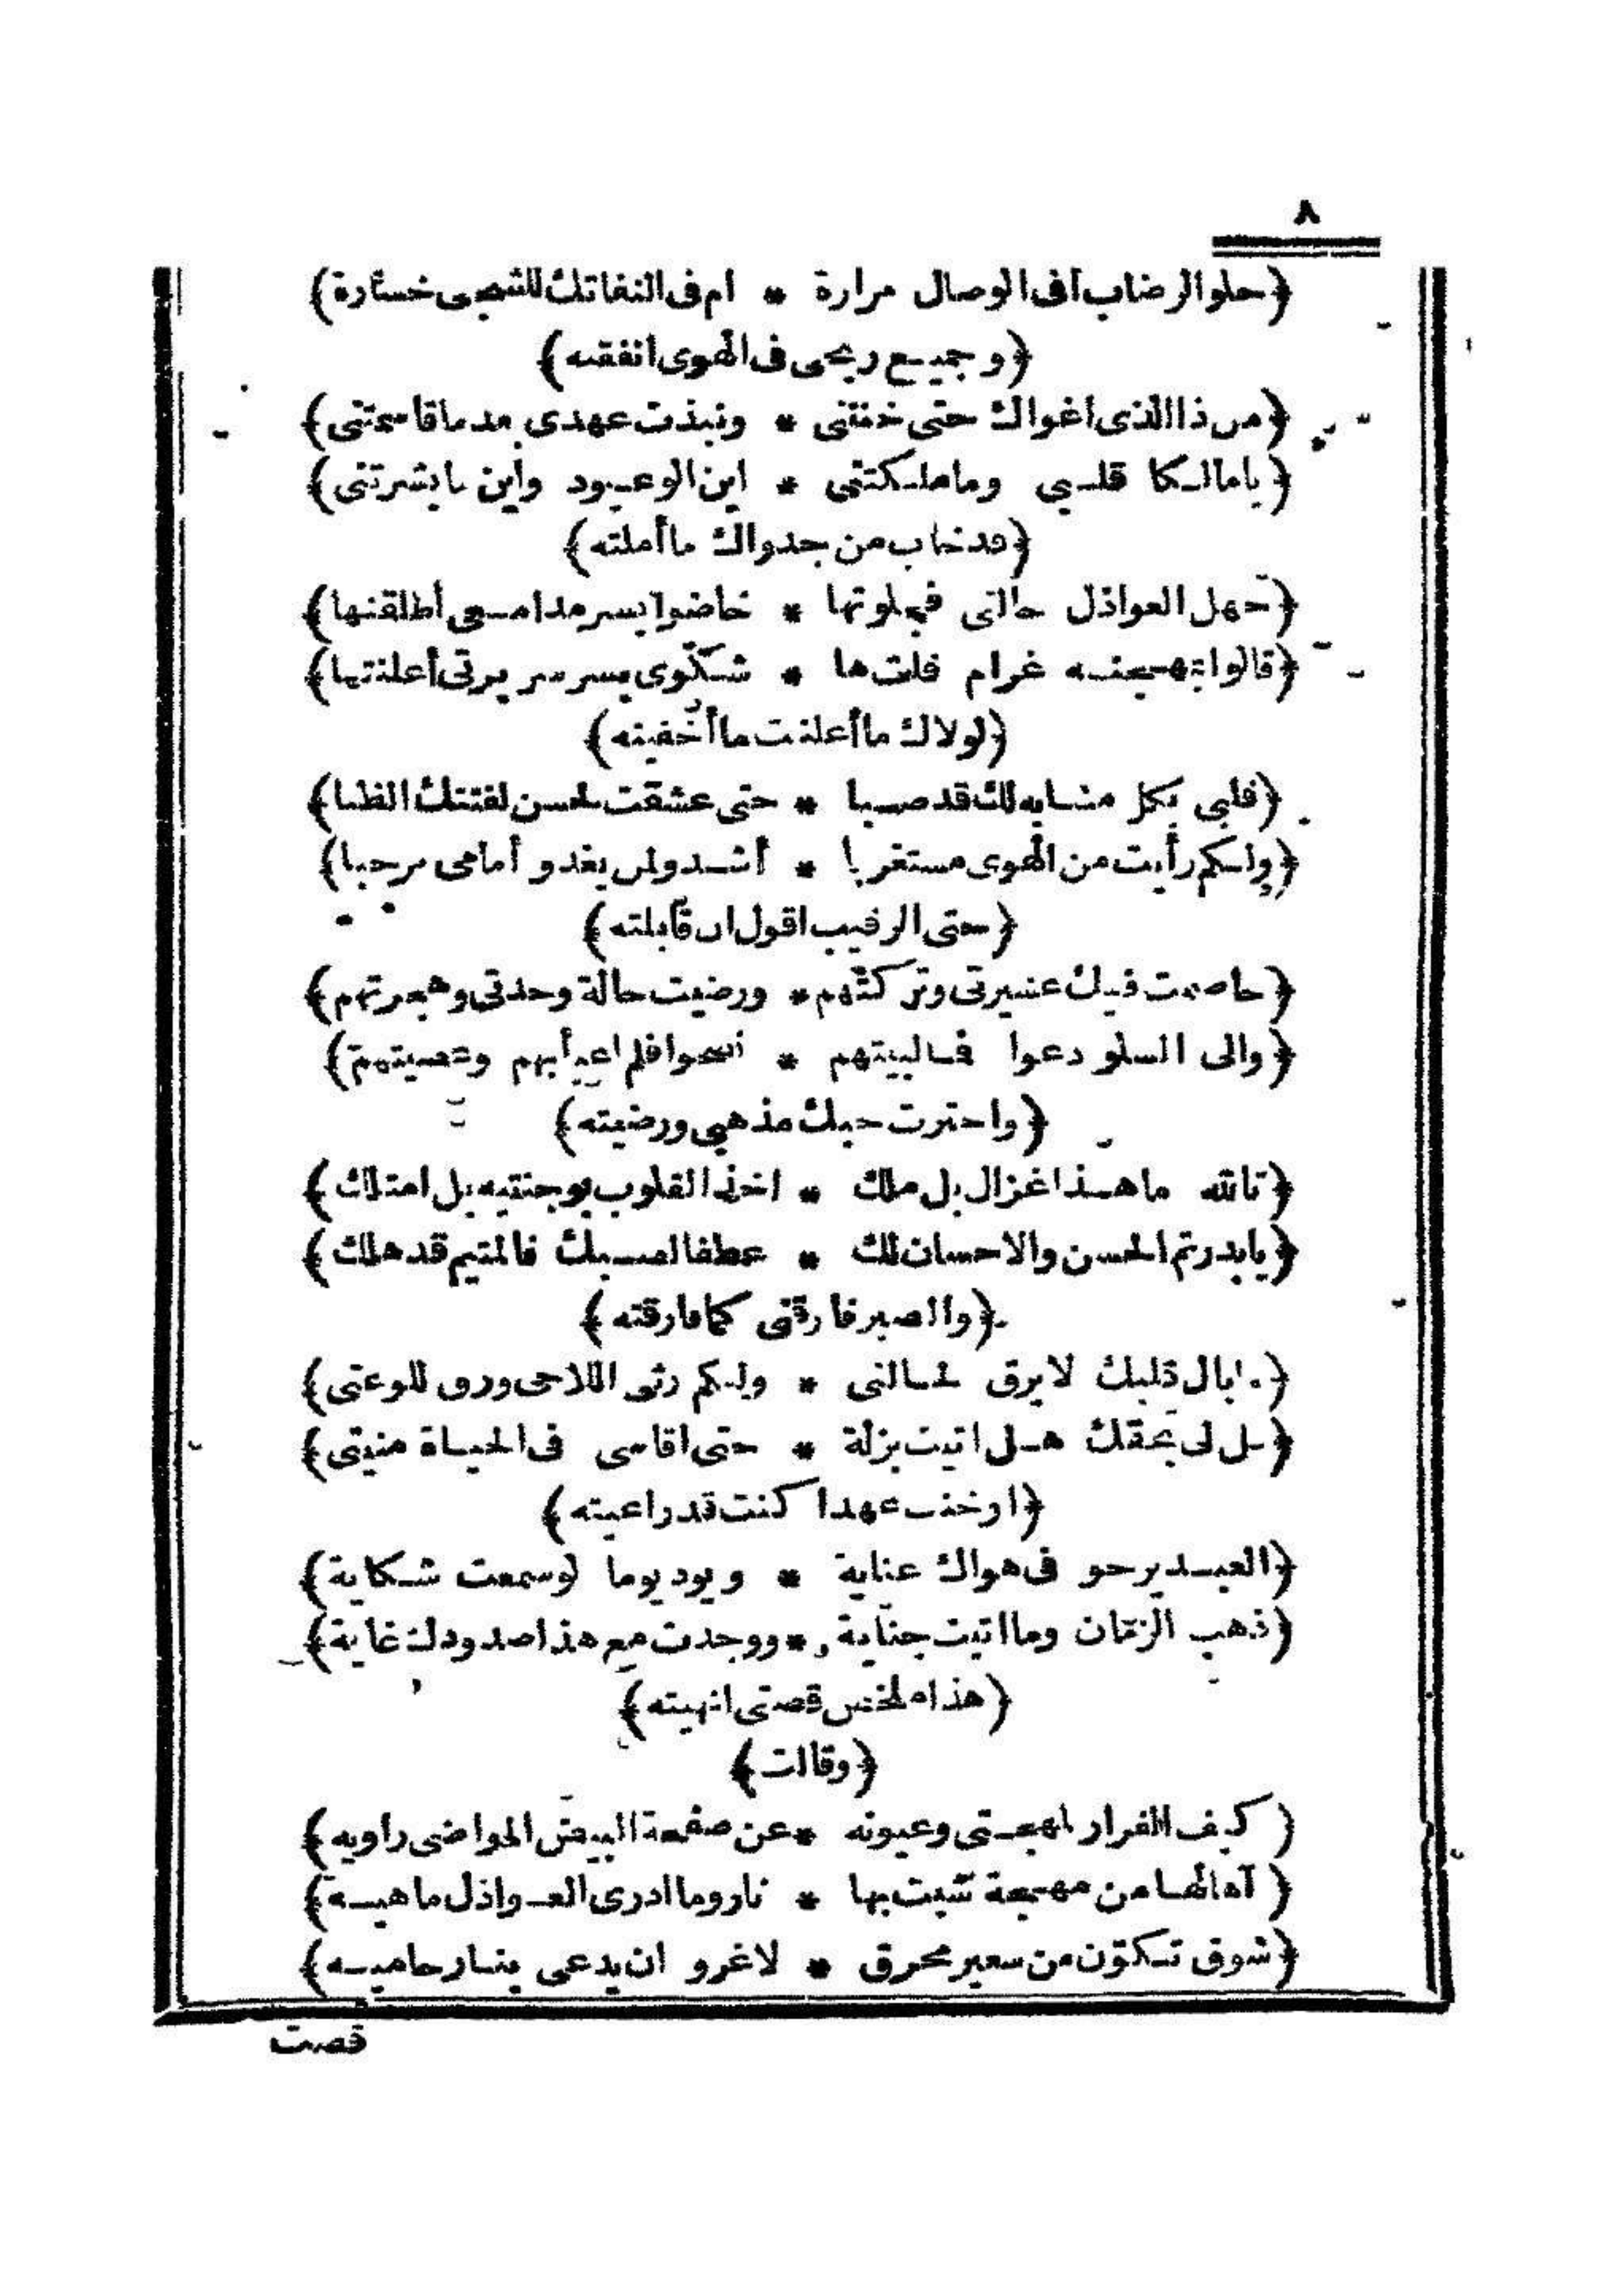 ٨
﴿حلو الرضاب أفى الوصال مرارة * ام فى التفاتك للشجى خسارة﴾
﴿وجميع ربحى فى الهوى انفقته﴾
﴿من ذا الذى اغواك حتى خنتنى * ونبذت عهدى بعد ما قاسمتنى﴾
﴿يا مالكا قلبي وما ملكتنى * اين الوعود واين ما بشرتنى﴾
﴿قد خاب من جدواك ما أملته﴾
﴿جهل العواذل حالتى فجلوتها * خاضوا بسر مدامعى أطلقتها﴾
﴿قالوا بمهجته غرام قلت ها * شكوى بسر سريرتى أعلنتها﴾
﴿لولاك ما أعلنت ما أخفيته﴾
﴿قلبى بكل مشابه لك قد صبا * حتى عشقت لحسن لفتتك الظبا﴾
﴿ولكم رأيت من الهوى مستغربا * أشدو لمن يغدو أمامى مرحبا﴾
﴿حتى الرقيب اقول ان قابلته﴾
﴿خاصمت فيك عشيرتى وتركتهم * ورضيت حالة وحدتى وهجرتهم﴾
﴿والى السلو دعوا فما لبيتهم * نصحوا فلم اعبأ بهم وعصيتهم﴾
﴿واخترت حبك مذهبى ورضيته﴾
﴿تالله ما هذا غزال بل ملك * اخذ القلوب بوجنتيه بل امتلك﴾
﴿يا بدر تم الحسن والاحسان لك * عطفا لصبك فالمتيم قد هلك﴾
﴿والصبر فارقنى كما فارقته﴾
﴿ما بال قلبك لا يرق لحالتى * ولكم رثى اللاحى ورق للوعتى﴾
﴿قل لى بحقك هل اتيت بزلة * حتى اقاسى فى الحياة منيتى﴾
﴿او خنت عهدا كنت قد راعيته﴾
﴿العبد يرجو فى هواك عناية * ويود يوما لو سمعت شكاية﴾
﴿ذهب الزمان وما اتيت جناية * ووجدت مع هذا صدودك غاية﴾
﴿هذا ملخص قصتى انهيته﴾
﴿وقالت﴾
﴿كيف الفرار لمهجتى وعيونه * عن صفحة البيض المواضى راويه﴾
﴿آها لها من مهجة شبت بها * نار وما ادرى العواذل ماهيه﴾
﴿شوق تكوّن من سعير محرق * لا غرو ان يدعى بنار حاميه﴾
قصت